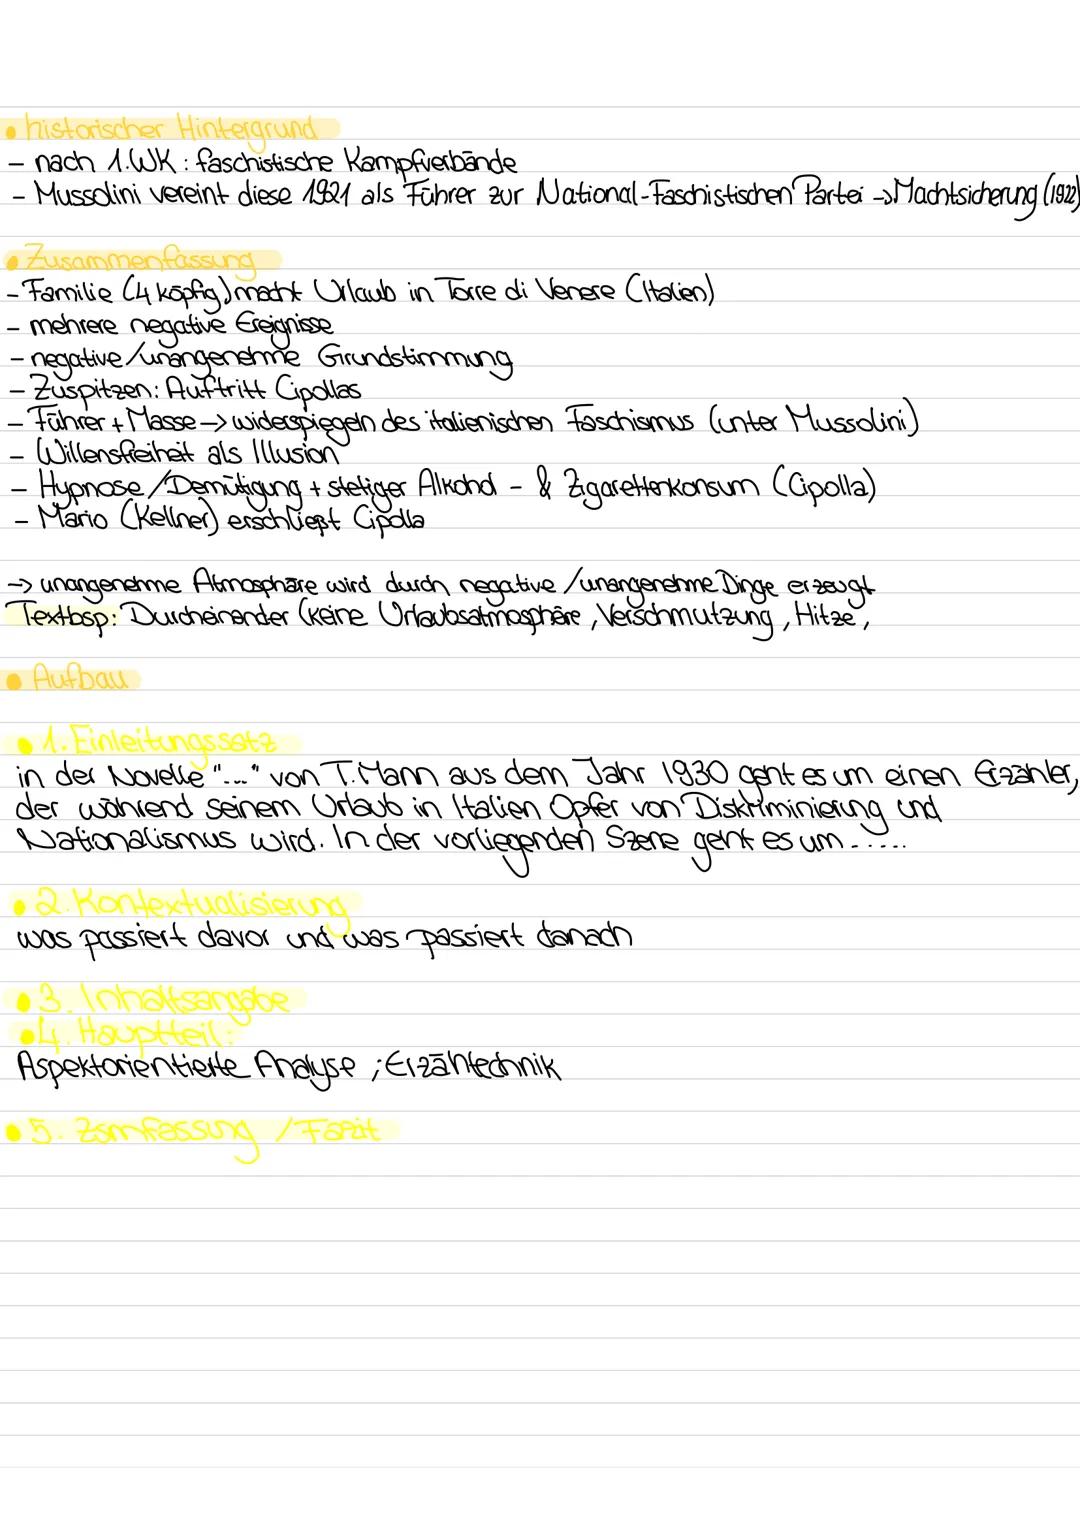 • historischer Hintergrund
- nach 1.WK : faschistische Kampfverbände
- Mussolini vereint diese 1921 als Führer zur National-Faschistischen Partei -> Machtsicherung (1922)
• Zusammenfassung
- Familie (4 köpfig) macht Urlaub in Torre di Venere (Italien)
- mehrere negative Ereignisse
- negative/unangenehme Grundstimmung
- Zuspitzen: Auftritt Cipollas
- Führer + Masse -> widerspiegeln des italienischen Faschismus (unter Mussolini)
- Willensfreiheit als Illusion
- Hypnose/Demütigung + stetiger Alkohol - & Zigarettenkonsum (Cipolla)
- Mario (Kellner) erschließt Cipolla
-> unangenehme Atmosphäre wird durch negative/unangenehme Dinge erzeugt
Textbsp: Durcheinander (keine Urlaubsatmosphäre, Verschmutzung, Hitze,
• Aufbau
• 1. Einleitungssatz
in der Novelle "..." von T. Mann aus dem Jahr 1930 geht es um einen Erzähler,
der während seinem Urlaub in Italien Opfer von Diskriminierung und
Nationalismus wird. In der vorliegenden Szene geht es um.....
• 2. Kontextualisierung
was passiert davor und was passiert danach
• 3. Inhaltsangabe
• 4. Hauptteil:
Aspektorientierte Analyse ; Erzähltechnik
• 5. Zsmfassung / Fazit